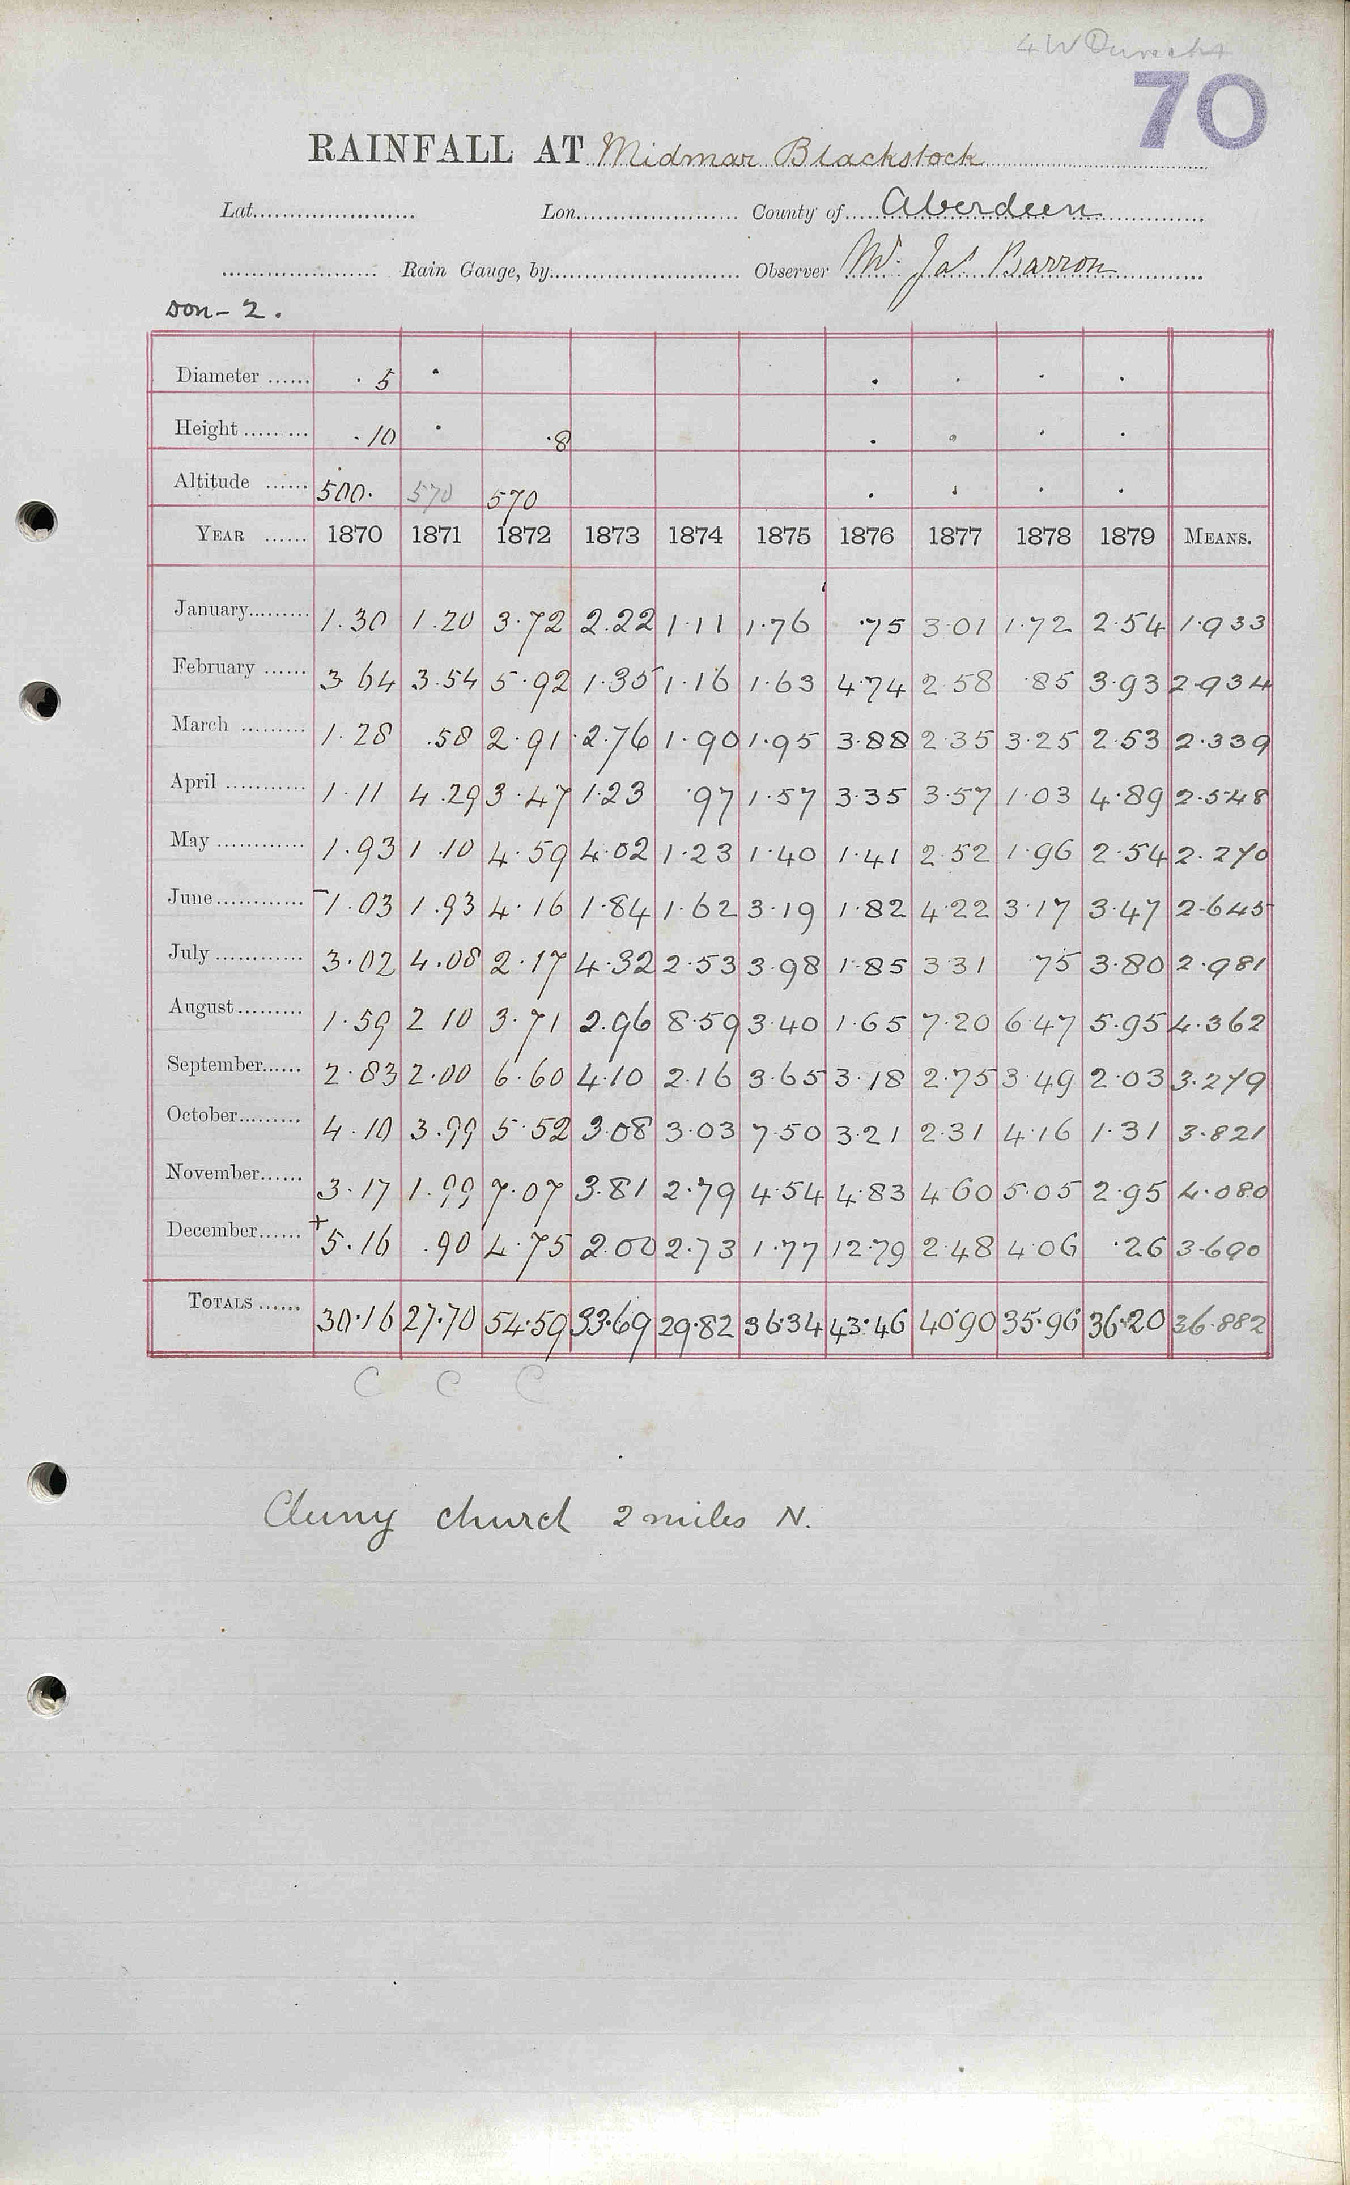 4 W Dunecht
70
RAINFALL AT Midmar Blackstock
Lat. Lon. County of Aberdeen
Rain Gauge, by Observer Mr. Jas. Barron
Don - 2.
Diameter ...... · 5 · · · · ·
Height ...... · 10 · · 8 · · · ·
Altitude ...... 500· 570 570 · · · ·
YEAR ...... 1870 1871 1872 1873 1874 1875 1876 1877 1878 1879 MEANS.
January 1.30 1.20 3.72 2.22 1.11 1.76 .75 3.01 1.72 2.54 1.933
February 3.64 3.54 5.92 1.35 1.16 1.63 4.74 2.58 .85 3.93 2.934
March 1.28 .58 2.91 2.76 1.90 1.95 3.88 2.35 3.25 2.53 2.339
April 1.11 4.29 3.47 1.23 .97 1.57 3.35 3.57 1.03 4.89 2.548
May 1.93 1.10 4.59 4.02 1.23 1.40 1.41 2.52 1.96 2.54 2.270
June -1.03 1.93 4.16 1.84 1.62 3.19 1.82 4.22 3.17 3.47 2.645
July 3.02 4.08 2.17 4.32 2.53 3.98 1.85 3.31 75 3.80 2.981
August 1.59 2.10 3.71 2.96 8.59 3.40 1.65 7.20 6.47 5.95 4.362
September 2.83 2.00 6.60 4.10 2.16 3.65 3.18 2.75 3.49 2.03 3.279
October 4.10 3.99 5.52 3.08 3.03 7.50 3.21 2.31 4.16 1.31 3.821
November 3.17 1.99 7.07 3.81 2.79 4.54 4.83 4.60 5.05 2.95 4.080
December +5.16 .90 4.75 2.00 2.73 1.77 12.79 2.48 4.06 .26 3.690
TOTALS ...... 30.16 27.70 54.59 33.69 29.82 36.34 43.46 40.90 35.96 36.20 36.882
C C C
Cluny church 2 miles N.